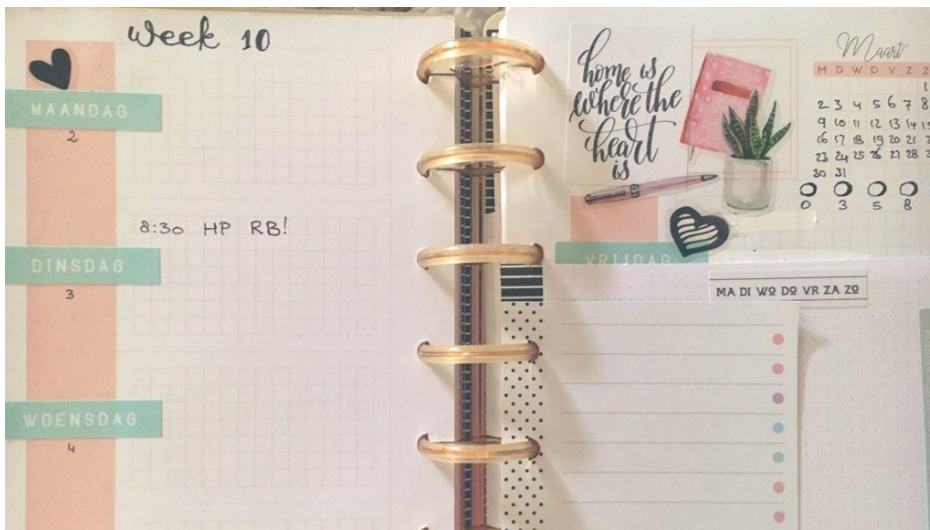 week 10
MAANDAG
2
8:30 HP RB!
DINSDAG
3
WOENSDAG
4
home is
where the
heart
is
Maart
M D W D V Z Z
1
2 3 4 5 6 7 8
9 10 11 12 13 14 15
16 17 18 19 20 21 2
23 24 25 26 27 28 2
30 31
0 3 5 8
VRIJDAG
MA DI WO DO VR ZA ZO